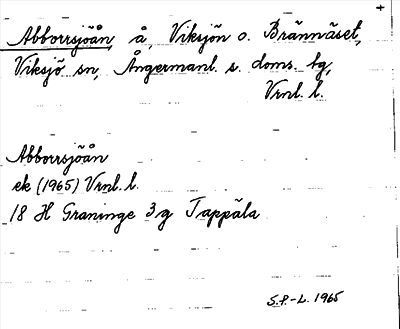 +
Abborrsjöån, å, Viksjön o. Brännäset,
Viksjö sn, Ångermanl. s. doms. tg,
Vrnl. l.
Abborrsjöån
ek (1965) Vrnl. l.
18 H Graninge 3g Tappäla
S.P.-L. 1965